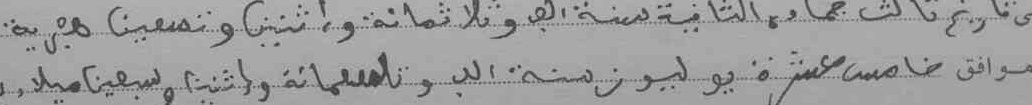 في تاريخ ثالث جمادى الثانية سنة الف وثلاثمائة واثنين وتسعين هجرية
موافق خامس عشرة يوليوز سنة الف وتسعمائة واثنين وسبعين ميلادية